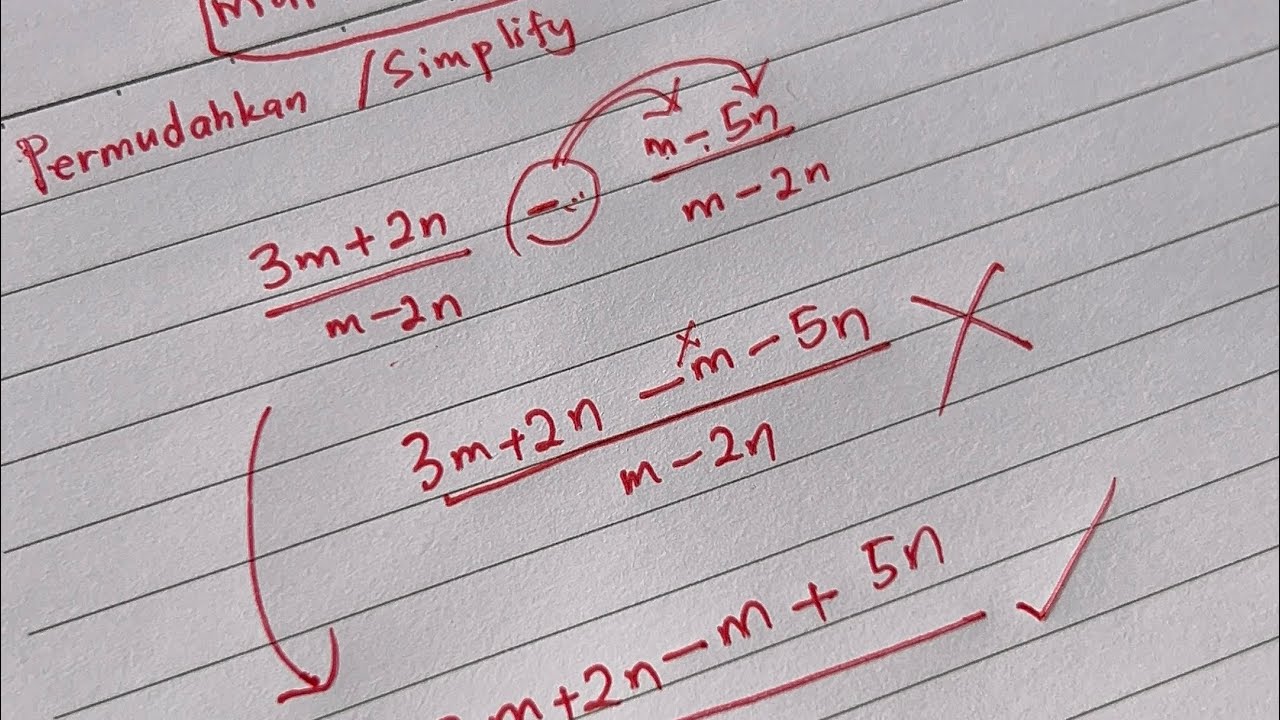 Permudahkan / Simplify
3m+2n/m-2n - m-5n/m-2n
3m+2n -m-5n/m-2n
m+2n-m+5n